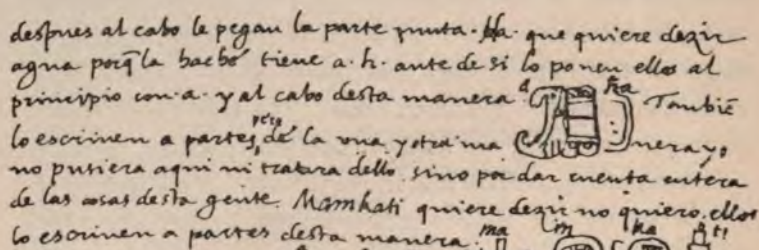 despues al cabo le pegan la parte junta. Ha que quiere dezir
agua porq̃ la hache tiene a. h. ante de si lo ponen ellos al
principio con. a. y al cabo desta manera a ha Tambiē
lo escriven a partes, pero de la una y otra ma nera yo
no pusiera aqui ni tratara dello sino por dar cuenta entera
de las cosas desta gente. Mamkati quiere dezir no quiero. ellos
lo escriven a partes desta manera: ma i n ka ti